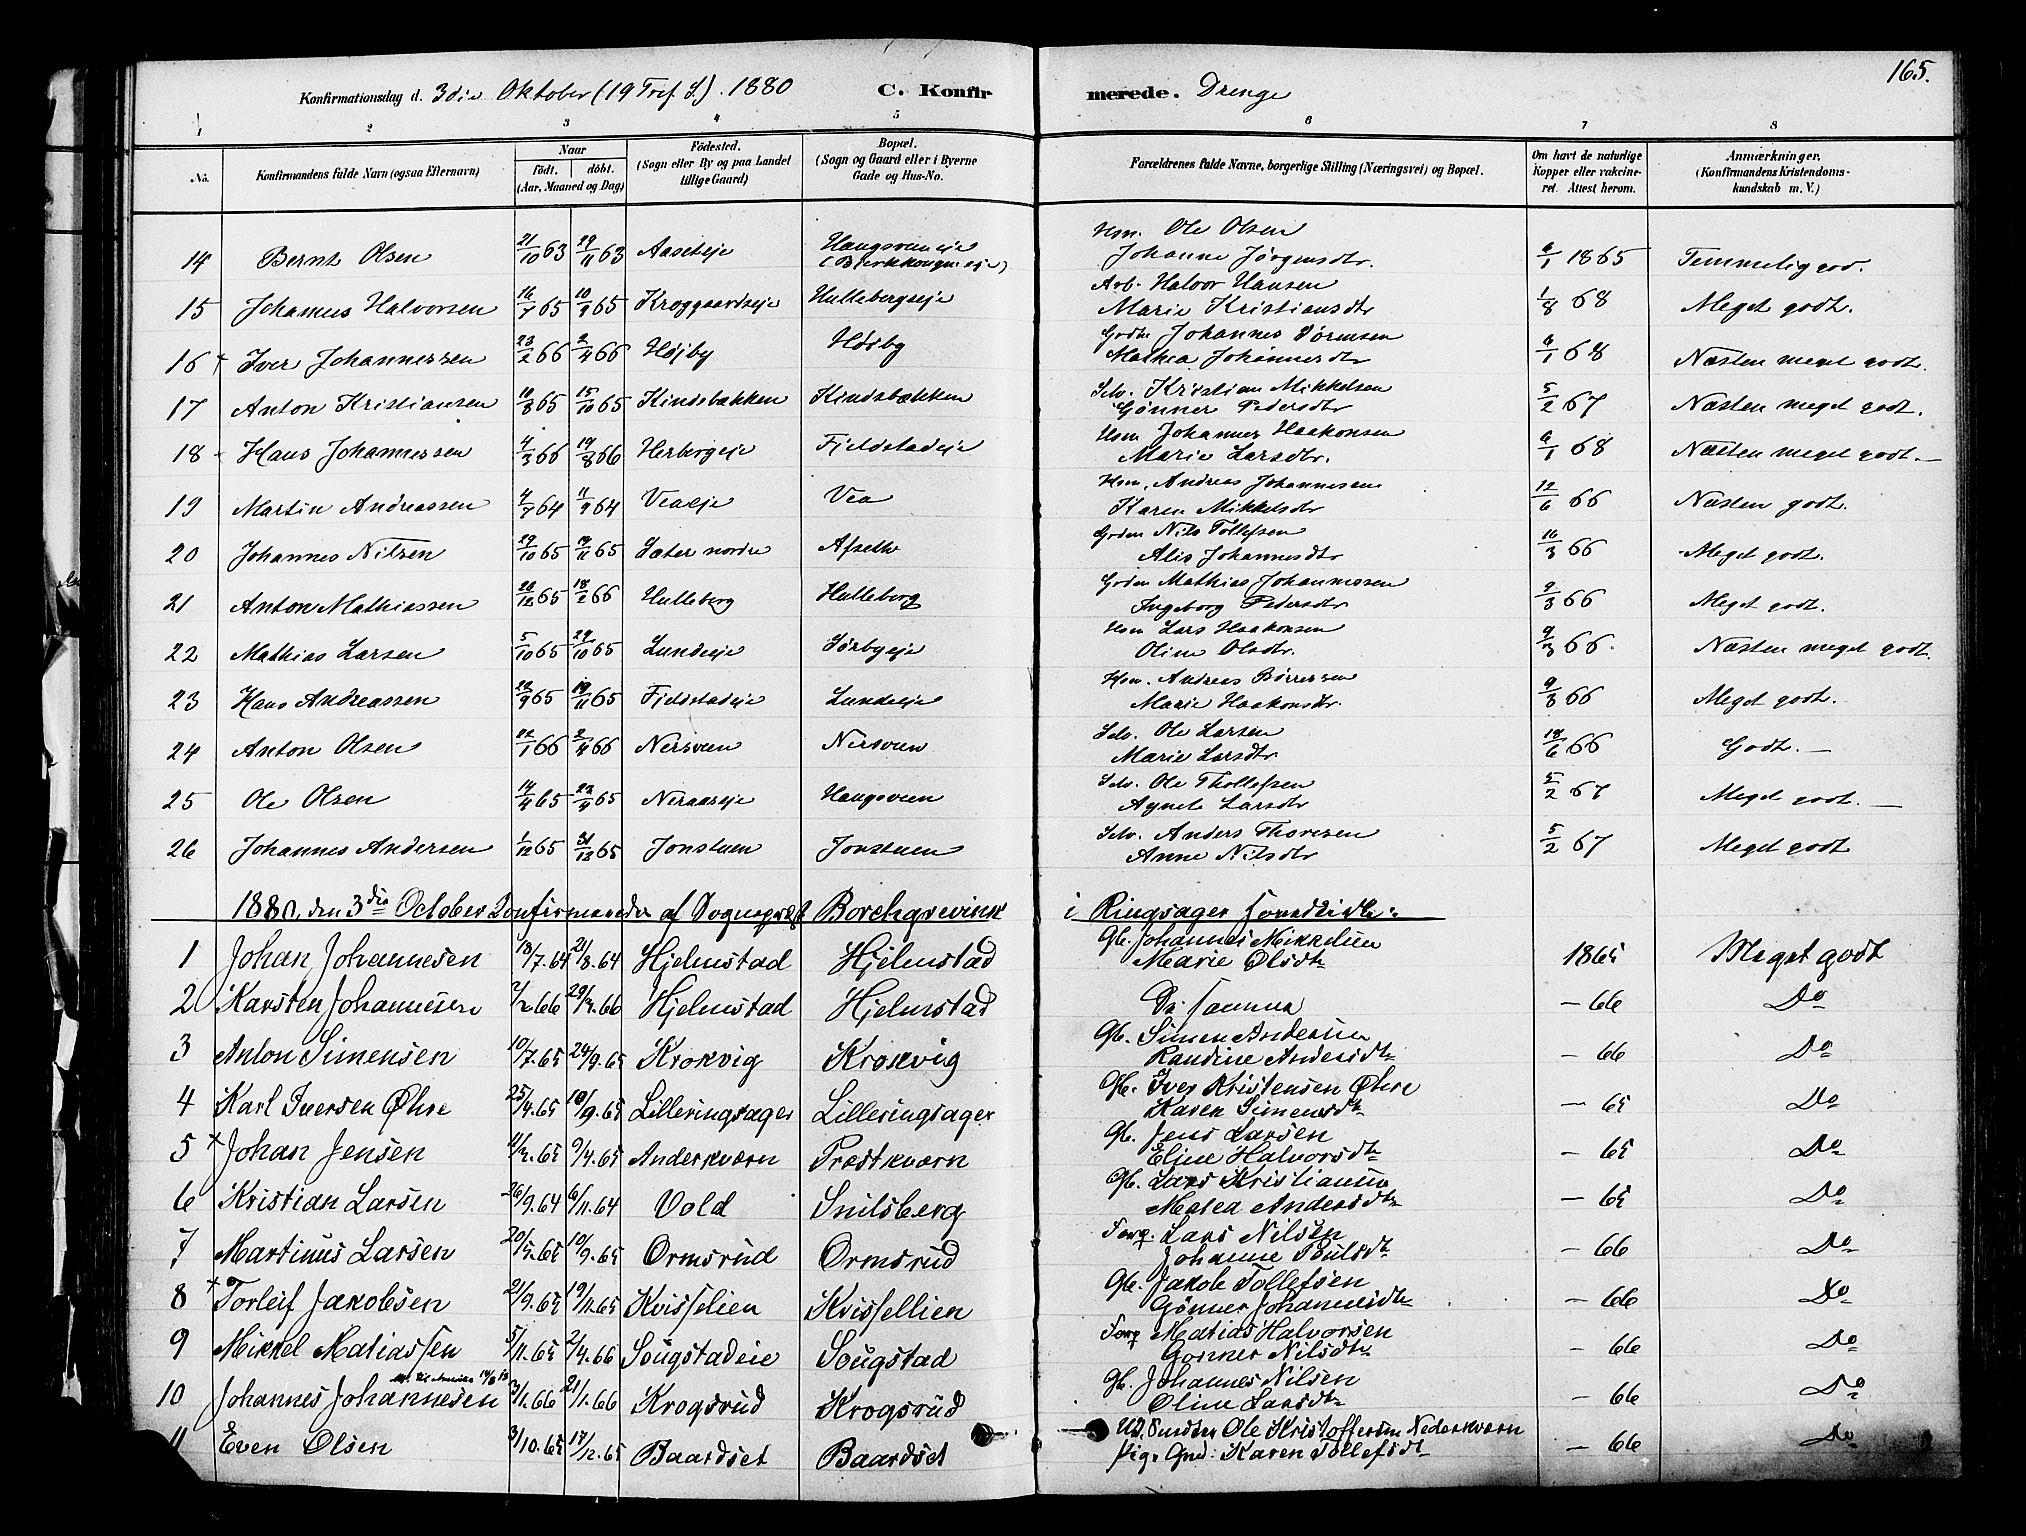 165.
Konfirmationsdag d. 3die Oktober (19 Tref. S.). 1880 C. Konfirmerede. Drenge
1 2 3 4 5 6 7 8
No. Konfirmandens fulde Navn (ogsaa Efternavn) Naar født. døbt. (Aar, Maaned og Dag) Fødested. (Sogn eller By og paa Landet tillige Gaard) Bopæl. (Sogn og Gaard eller i Byerne Gade og Hus-No. Forældrenes fulde Navne, borgerlige Stilling (Næringsvei) og Bopæl. Om havt de naturlige Kopper eller vakcineret. Attest herom. Anmærkninger. (Konfirmandens Kristendomskundskab m. V.)
14 Bernt Olsen 21/10 63 29/11 63 Aaseteje Haugsveneje Hsm. Ole Olsen Johanne Jørgensdtr. 6/1 1865 Temmelig god.
15 Johannes Halvorsen 16/7 65 10/9 65 Kroggaardseje Hullebergseje Arb. Halvor Hansen Marie Kristiansdtr 1/8 68 Meget godt.
16 + Iver Johannessen 23/2 66 2/4 66 Højby Højby Gdbr. Johannes Sørensen Mathea Johannesdtr 6/1 68 Næsten meget godt.
17 Anton Kristiansen 10/8 65 15/10 65 Kindsbækken Kindsbækken Selv. Kristian Mikkelsen Gønner Pedersdtr 5/2 67 Næsten meget godt.
18 - Hans Johannessen 4/3 66 19/8 66 Herbergeje Fjeldstadeje Hsm Johannes Haakonsen Marie Larsdtr. 6/1 68 Næsten meget godt.
19 Martin Andreassen 4/7 64 11/9 64 Veaeje Vea Hsm. Andreas Johannesen Karen Mikkelsdtr 12/6 66 Næsten godt.
20 Johannes Nilsen 29/10 65 19/11 65 Sæter nordre Afseth Grdm Nils Tollefsen Alis Johannesdtr 16/3 66 Meget godt.
21 Anton Mathiassen 26/12 65 18/2 66 Hulleberg Hulleberg Grdm Mathias Johannessen Ingeborg Pedersdtr 9/3 66 Meget godt.
22 Mathias Larsen 5/10 65 29/10 65 Lundeeje Sørbyeje Hsm Lars Haakonsen Oline Olsdtr. 9/3 66. Næsten meget godt.
23 Hans Andreassen 22/9 65 19/11 65 Fjeldstadeje Lundeeje Hsm. Andreas Børresen Marie Haakonsdtr. 9/3 66 Meget godt.
24 Anton Olsen 22/1 66 2/4 66 Nersveen Nersveen Selv. Ole Larsen Marie Larsdtr. 18/6 66 Godt.
25 Ole Olsen 14/4 65 Neraaseje Haugsveen Selv. Ole Thollefsen Agnete Larsdtr 5/2 67 Meget godt.
26 Johannes Andersen 1/12 65 31/12 65 Jonstuen Jonstuen Selv. Anders Thoresen Anne Nilsdtr 5/2 67 Meget godt
1880, den 3die October Konfirmereder af Sognepræst Borchgrevink i Ringsager
1 Johan Johannesen 18/7.64 21/8.64 Hjelmstad Hjelmstad Gb. Johannes Mikkelsen Marie Olsdtr 1865 Meget godt
2 Karsten Johannesen 2/2 66 29/3.66 Hjelmstad Hjelmstad De samme - 66 Do
3 Anton Simensen 10/7.65 24/9.65 Krokvig Krokvig Gb. Simen Andersen Randine Andersdtr - 66 Do
4 Karl Iversen Øhre 25/4.65 10/9.65 Lilleringsager Lilleringsager Gb. Iver Kristensen Øhre Karen Simensdtr - 65 Do
5 + Johan Jensen 9/4.65 Anderkværn Prestkværn Gb. Jens Larsen Eline Halvorsdtr - 65 Do
6 Kristian Larsen 26/9.64 6/11.64 Vold Snilsberg Gb. Lars Kristiansen Matea Andersdtr - 65 Do
7 Martinus Larsen 20/5.65 10/9.65 Ormsrud Ormsrud Forp. Lars Nilsen Johanne Poulsdtr - 66 Do
8 + Torleif Jakobsen 21/9.65 19/11.65 Kvisselien Kvissellien Gb. Jakob Tollefsen Gønner Johannesdtr - 66 Do
9 Mikkel Matiassen 5/11.65 2/4.66 Sougstadeie Sougstad Forp Matias Halvorsen Gønner Nilsdtr - 66 Do
10 Johannes Johannesen 3/1.66 21/1.66 Krogsrud Krogsrud Gb. Johannes Nilsen Oline Larsdtr - 66 Do
11 Even Olsen 3/10.65 17/12.65 Baardset Baardset Ole Kristoffersen Nederkværn Pige Gmd: Karen Tollefsdtr - 66 Do